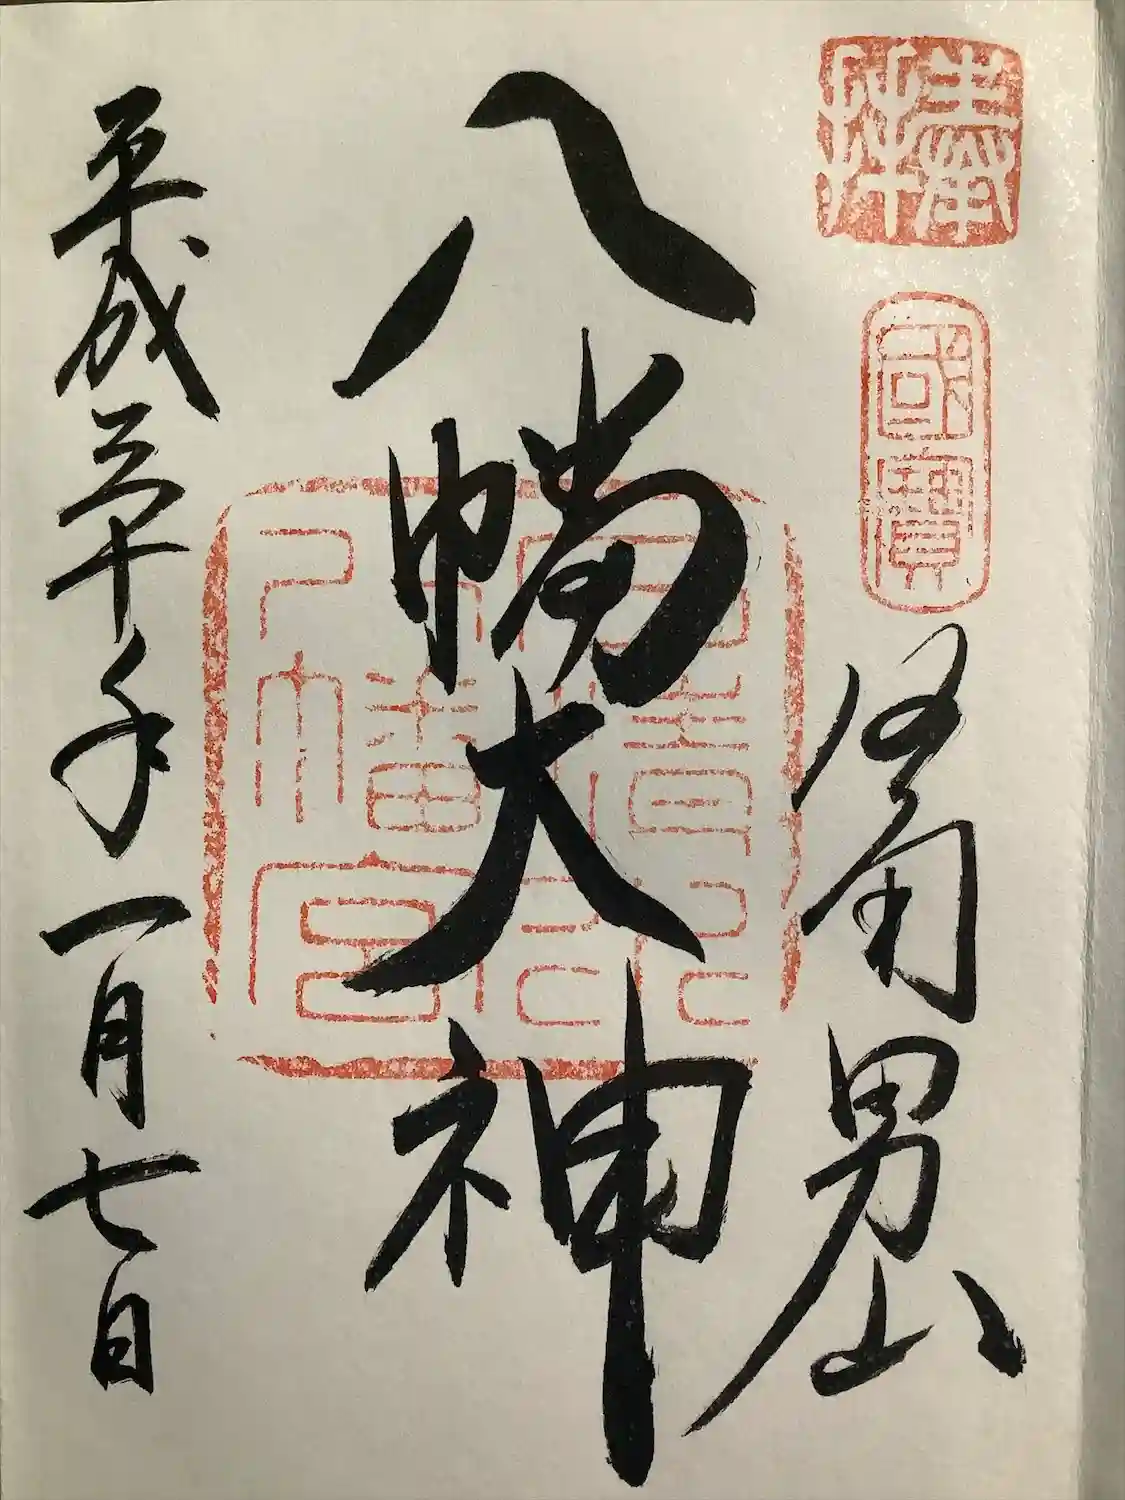 奉拝
國寶
洛南男山
八幡大神
石清水
八幡宮
平成三十年一月七日